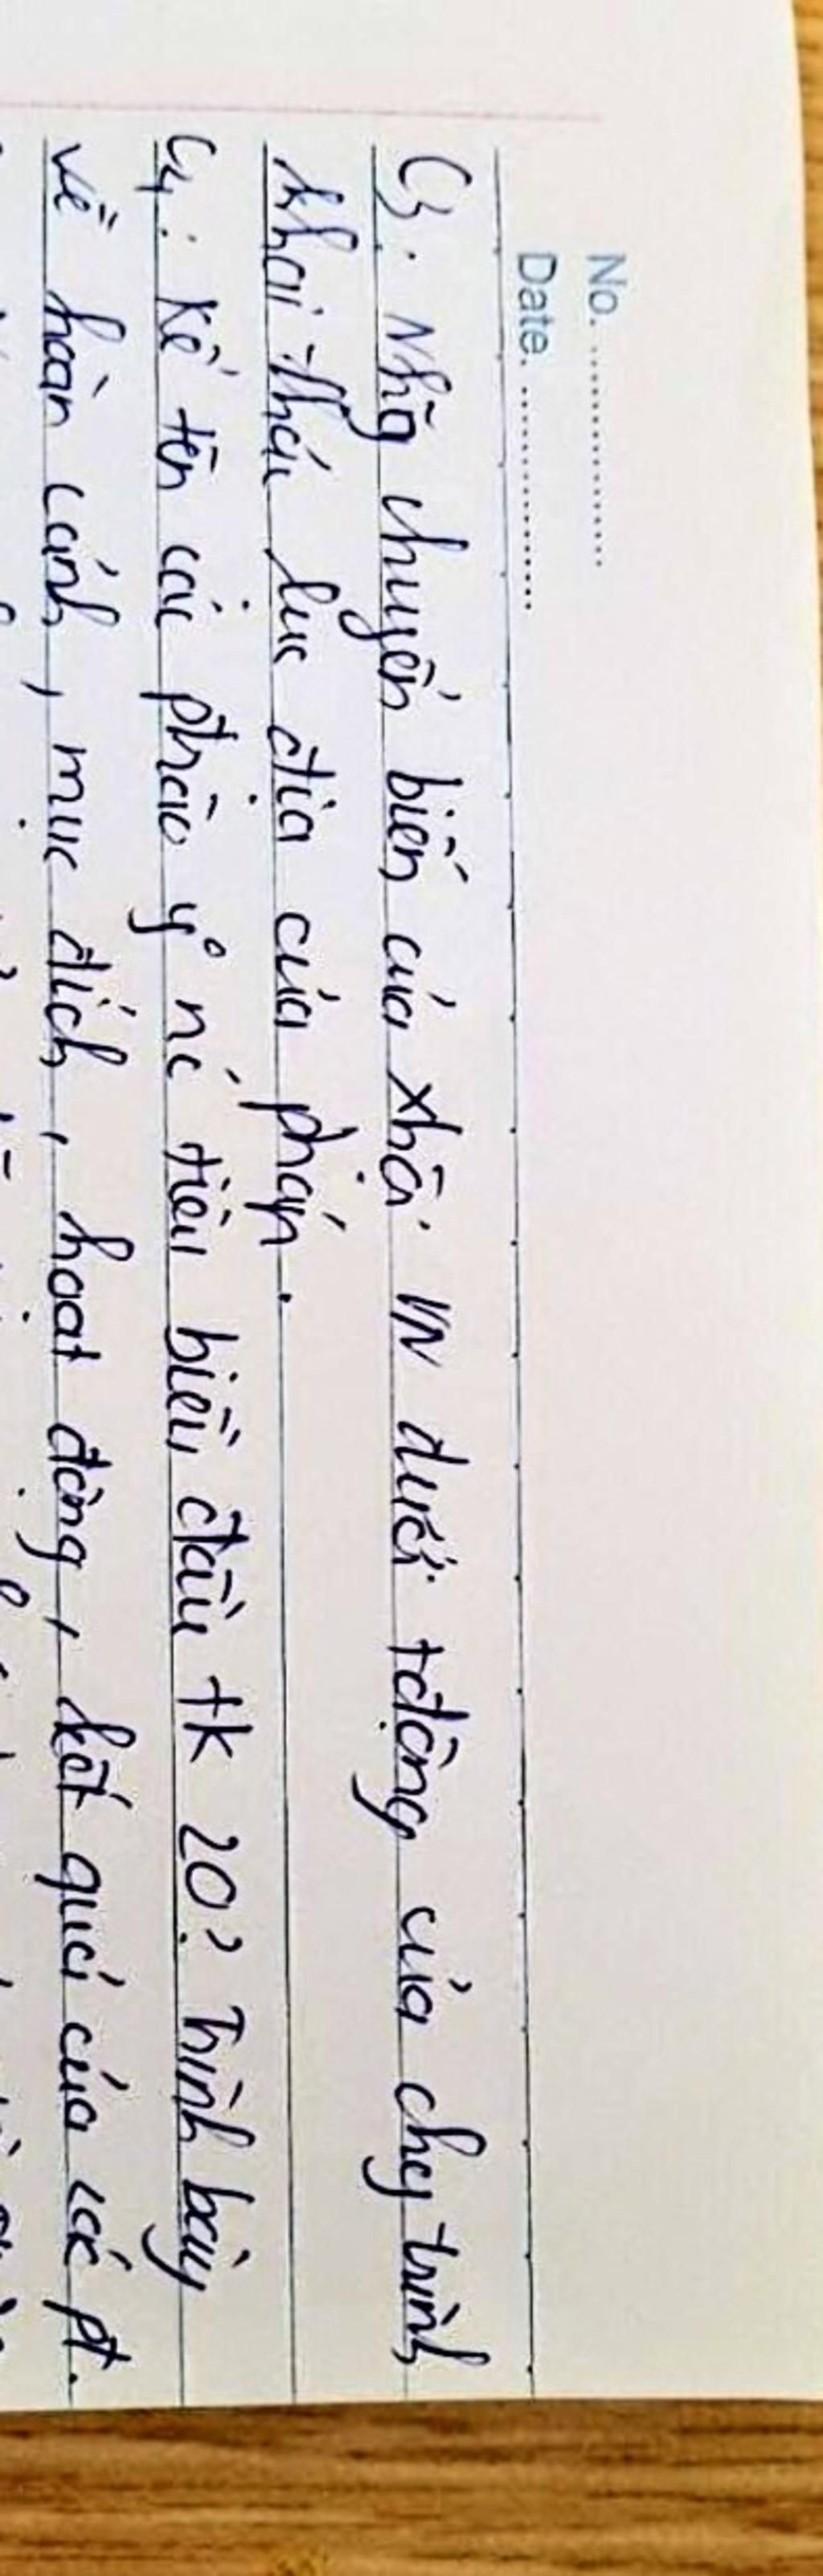 No. ....................
Date. ....................
C3. Nhữg chuyển biến của xhội VN dưới tđộng của chg trình
khai thác lục địa của pháp.
C4: Kể tên các phtrào y nc tiêu biểu đầu tk 20? Trình bày
về hoàn cảnh, mục đích, hoạt động, kết quả của các pt.